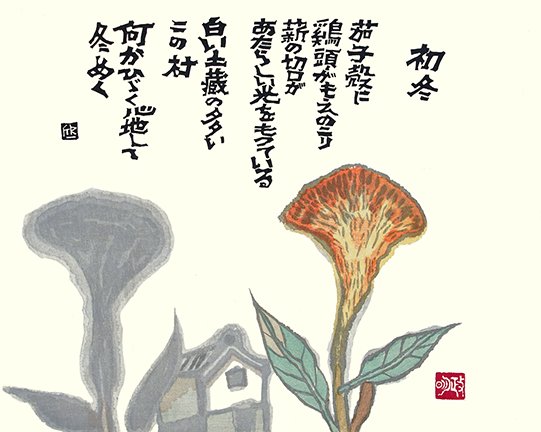 初冬
茄子殻に
鶏頭がもえのこり
薪の切口が
あたらしい光をもつている
白い土蔵の多い
この村
何かひゞく心地して
冬めく